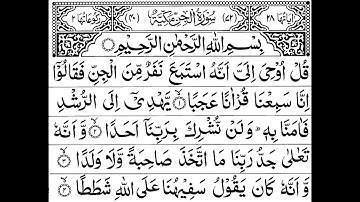 اٰيَاتُهَا ٢٨ (٧٢) سُوْرَةُ الْجِنِّ مَكِّيَّةٌ (٤٠) رُكُوْعَاتُهَا ٢
بِسْمِ اللّٰهِ الرَّحْمٰنِ الرَّحِيْمِ
قُلْ اُوْحِيَ اِلَيَّ اَنَّهُ اسْتَمَعَ نَفَرٌ مِّنَ الْجِنِّ فَقَالُوْۤا
اِنَّا سَمِعْنَا قُرْاٰنًا عَجَبًا ۙ۝١ يَّهْدِيْۤ اِلَى الرُّشْدِ
فَاٰمَنَّا بِهٖ ؕ وَلَنْ نُّشْرِكَ بِرَبِّنَاۤ اَحَدًا ۙ۝٢ وَّاَنَّهٗ
تَعٰلٰى جَدُّ رَبِّنَا مَا اتَّخَذَ صَاحِبَةً وَّلَا وَلَدًا ۙ۝٣
وَّاَنَّهٗ كَانَ يَقُوْلُ سَفِيْهُنَا عَلَى اللّٰهِ شَطَطًا ۙ۝٤